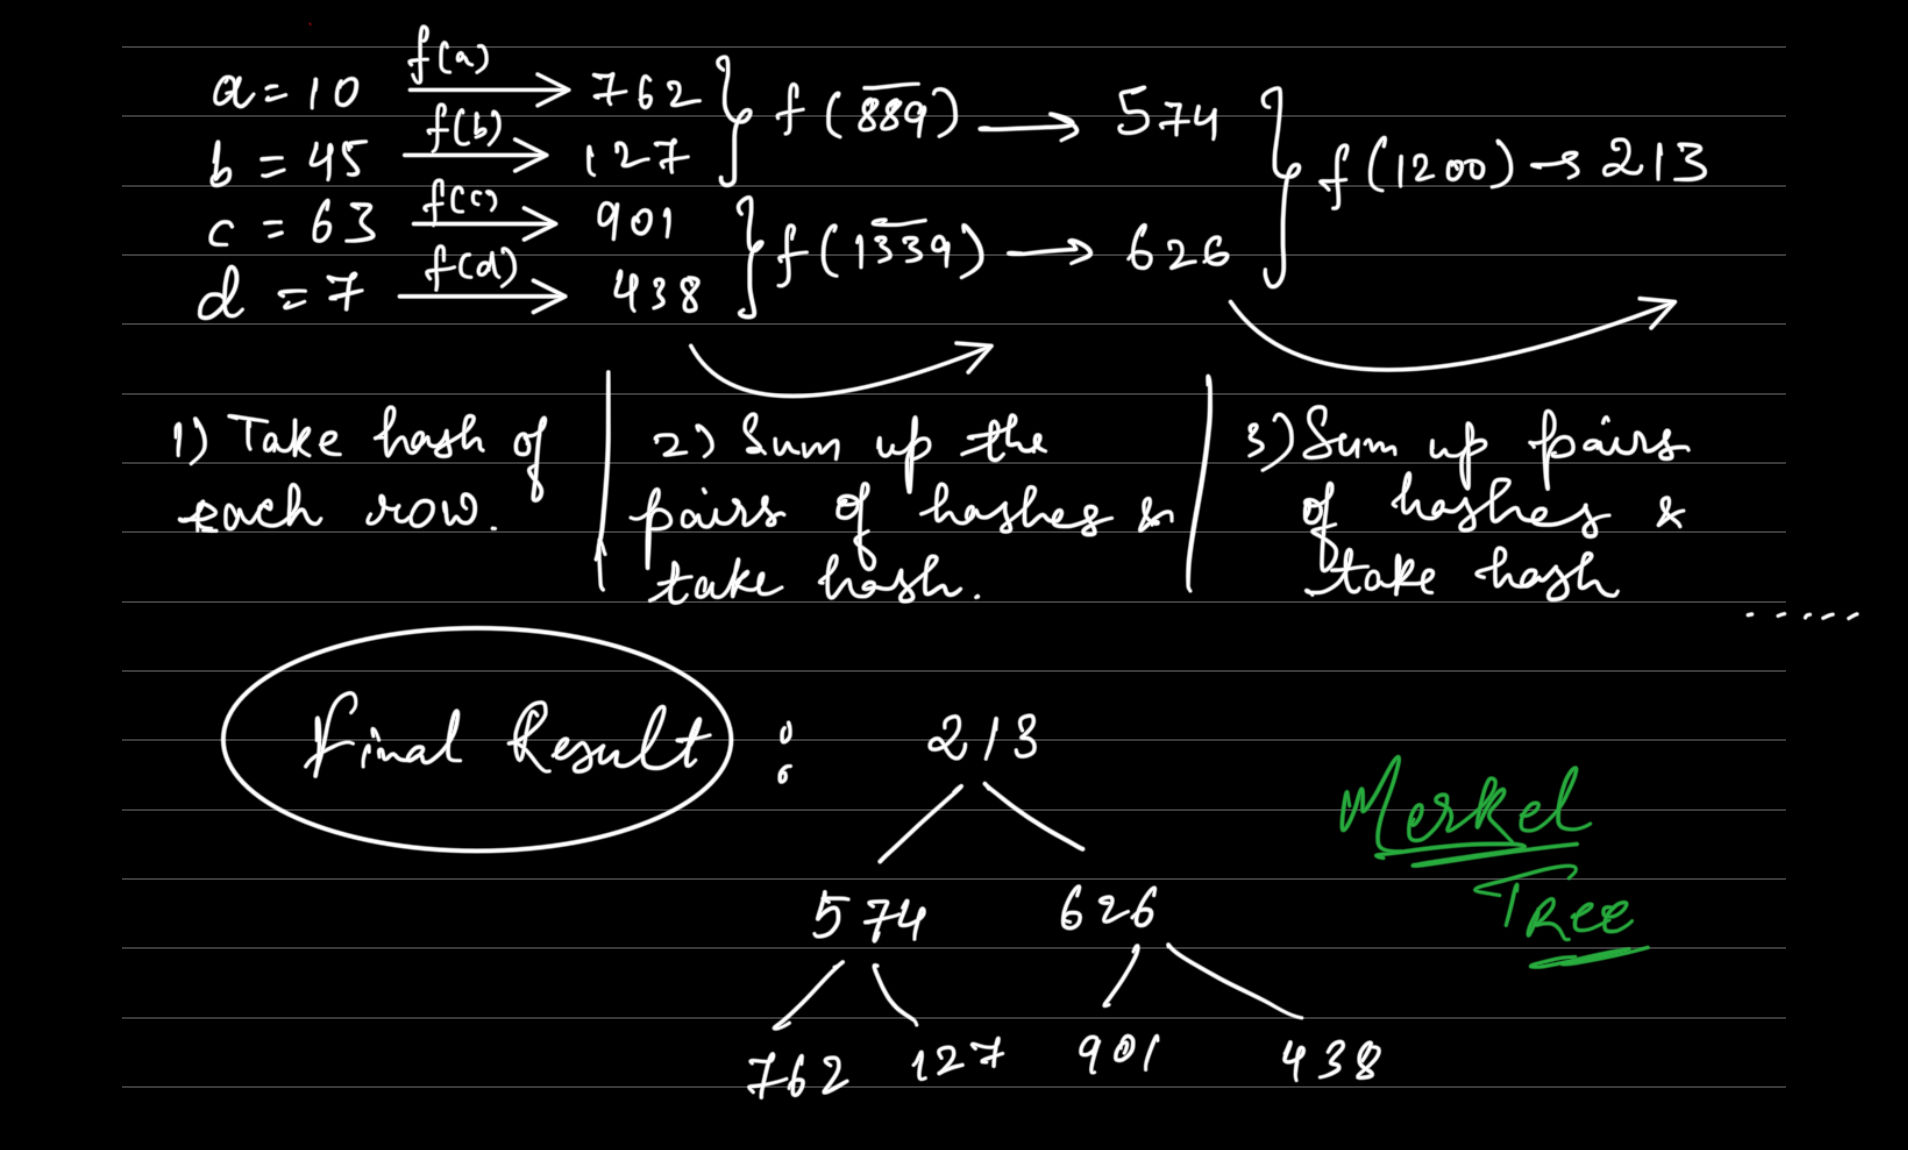 a = 10 f(a) → 762 } f(889) → 574 } f(1200) → 213
b = 45 f(b) → 127
c = 63 f(c) → 901 } f(1339) → 626
d = 7 f(d) → 438
1) Take hash of
each row.
2) Sum up the
pairs of hashes &
take hash.
3) Sum up pairs
of hashes &
take hash
.....
Final Result : 213
574 626
762 127 901 438
Merkel
Tree